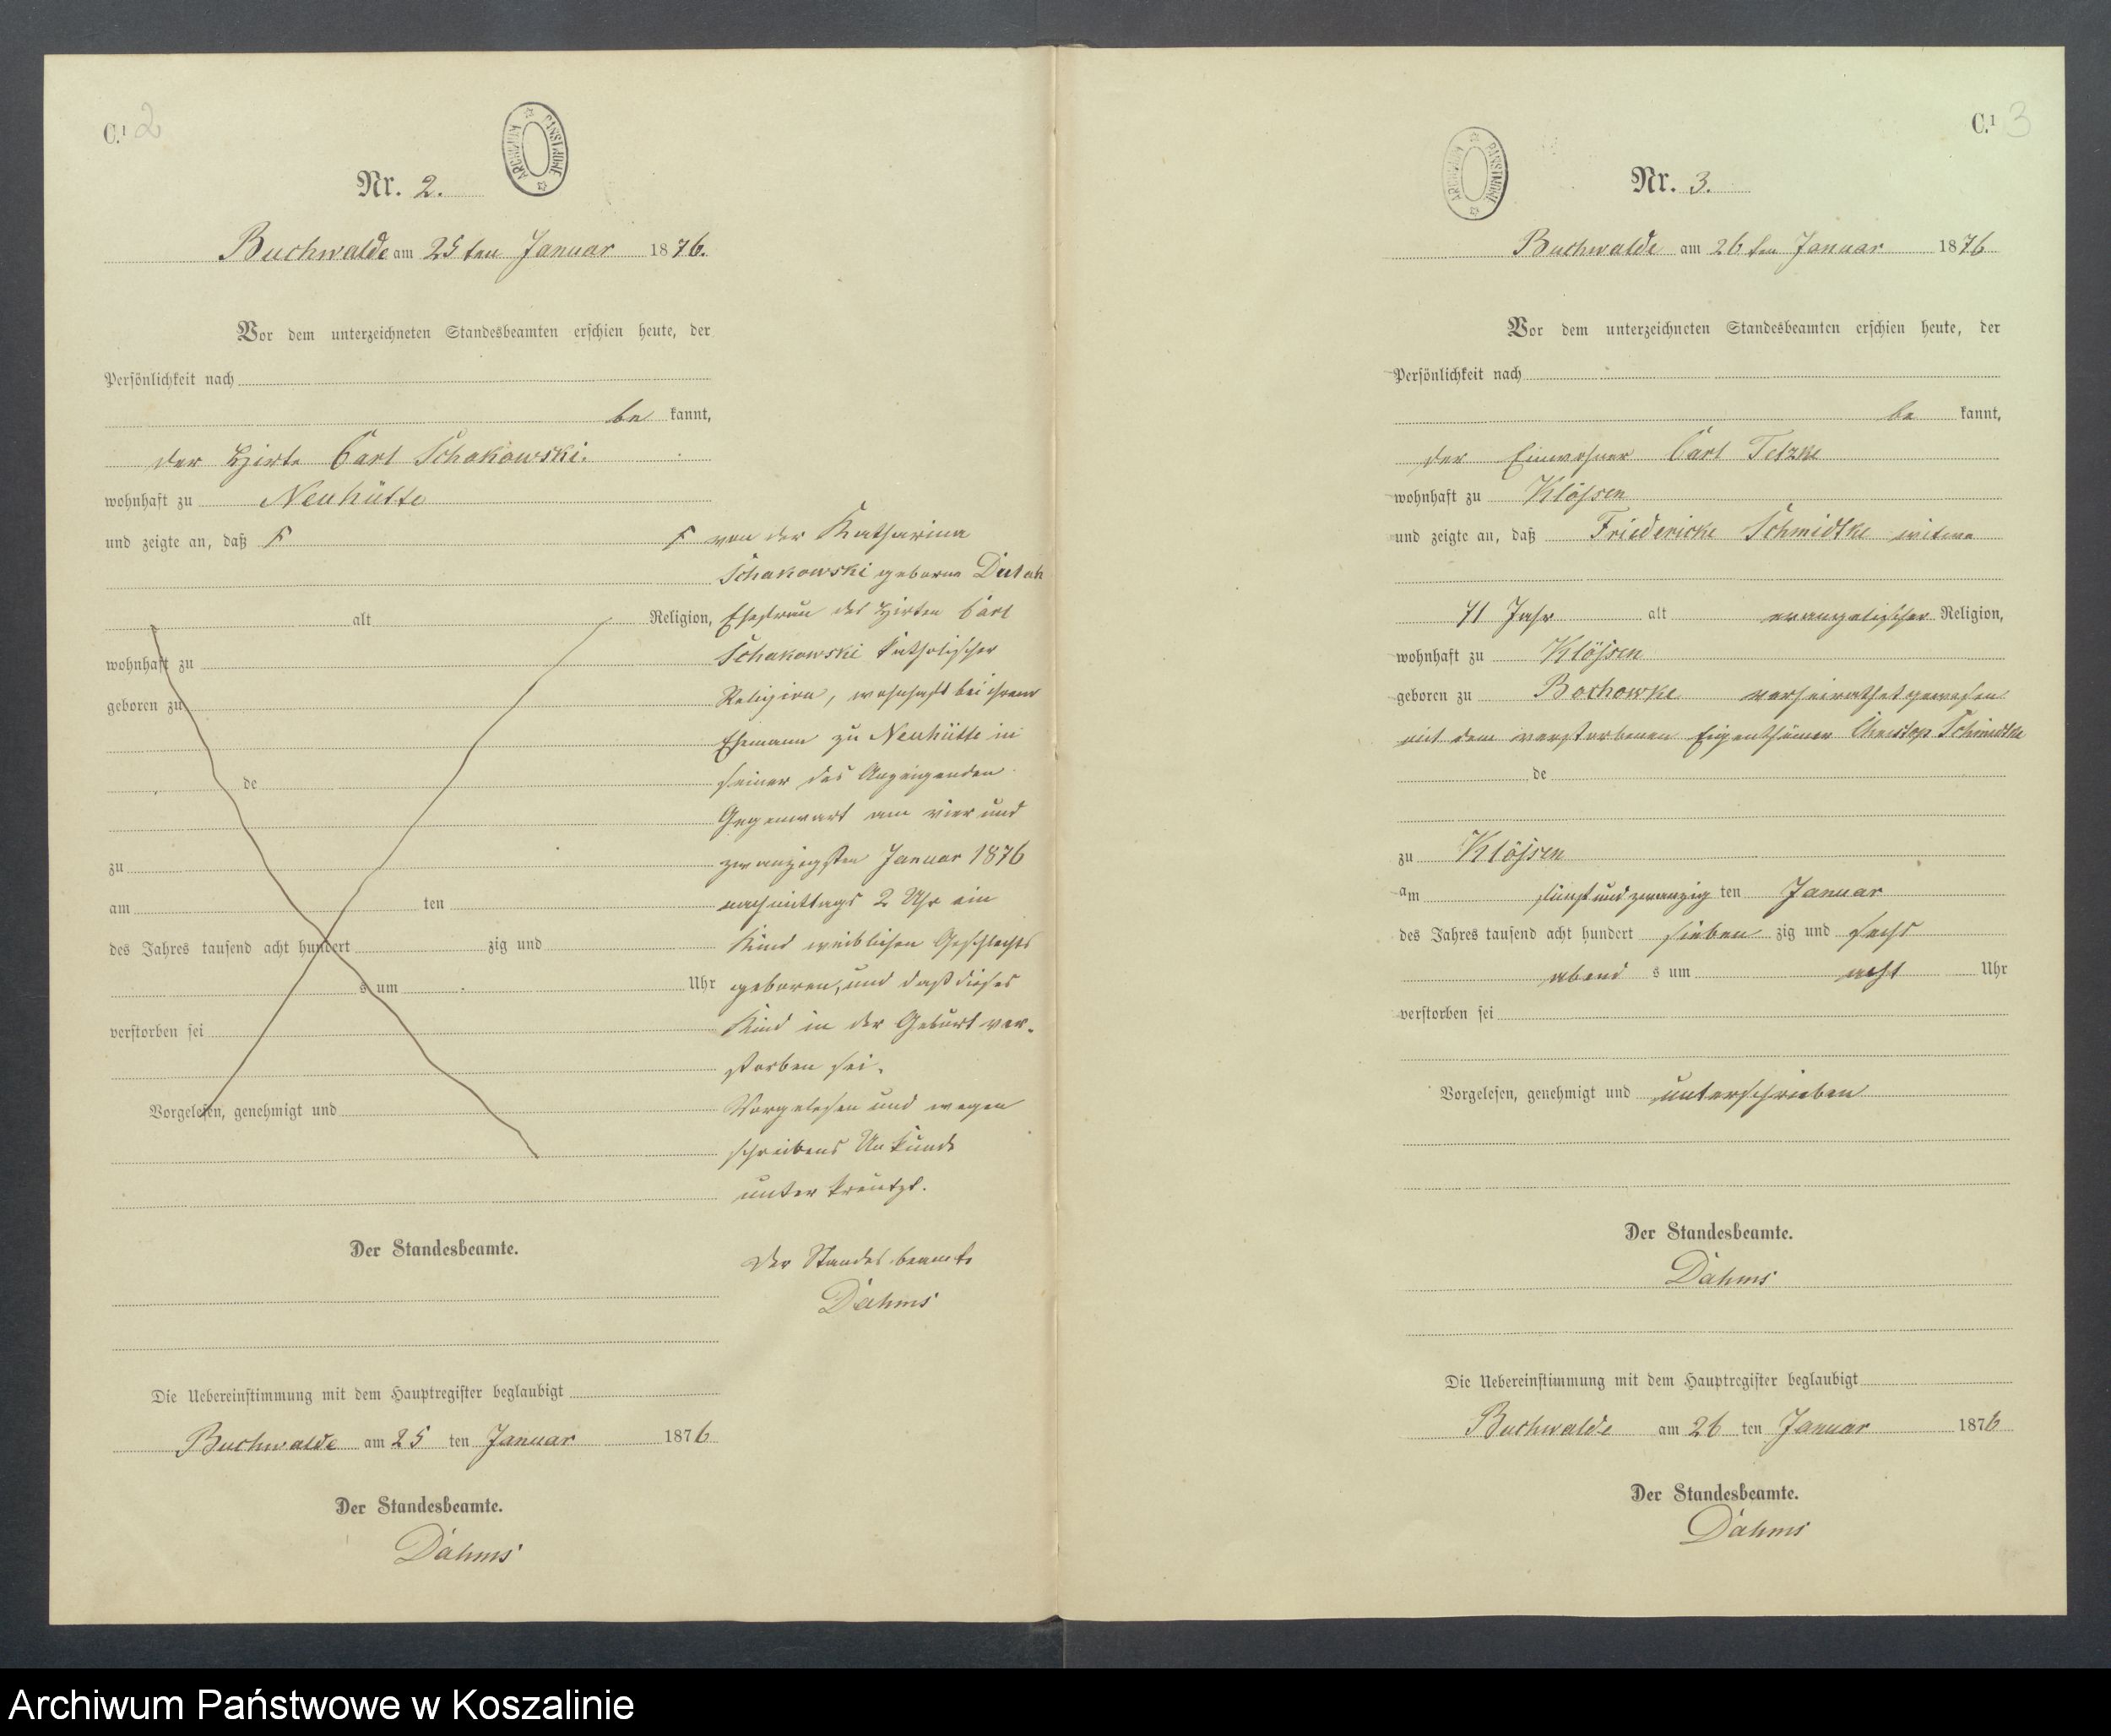 C.¹ 2
ARCHIWUM PAŃSTWOWE
Nr. 2.
Buchwalde am 25 ten Januar 1876.
Vor dem unterzeichneten Standesbeamten erschien heute, der
Persönlichkeit nach
be kannt,
der Hirte Carl Schakowski.
wohnhaft zu Neuhütte
und zeigte an, daß
alt Religion,
wohnhaft zu
geboren zu
de
zu
am ten
des Jahres tausend acht hundert zig und
s um Uhr
verstorben sei
Vorgelesen, genehmigt und
Der Standesbeamte.
von der Katharina
Schakowski geborne
Ehefrau des Hirten Carl
Schakowski katholischer
Religion, wohnhaft bei ihrem
Ehemann zu Neuhütte in
seiner des Anzeigenden
Gegenwart am vier und
zwanzigsten Januar 1876
nachmittags 2 Uhr ein
Kind weiblichen Geschlechts
geboren, und daß dieses
Kind in der Geburt ver-
storben sei.
Vorgelesen und wegen
schreibens Unkunde
unterkreutzt.
Der Standesbeamte
Dahms
Die Uebereinstimmung mit dem Hauptregister beglaubigt
Buchwalde am 25 ten Januar 1876
Der Standesbeamte.
Dahms
C.¹ 3
ARCHIWUM PAŃSTWOWE
Nr. 3.
Buchwalde am 26 ten Januar 1876
Vor dem unterzeichneten Standesbeamten erschien heute, der
Persönlichkeit nach
be kannt,
der Einwohner Carl Tetzke
wohnhaft zu Klössen
und zeigte an, daß Friedericke Schmidtke witwe
71 Jahr alt evangelischer Religion,
wohnhaft zu Klössen
geboren zu Bochowke verheirathet gewesen
mit dem verstorbenen Eigenthümer Christop Schmidtke
de
zu Klössen
am fünf und zwanzig ten Januar
des Jahres tausend acht hundert sieben zig und sechs
abend s um acht Uhr
verstorben sei
Vorgelesen, genehmigt und unterschrieben
Der Standesbeamte.
Dahms
Die Uebereinstimmung mit dem Hauptregister beglaubigt
Buchwalde am 26 ten Januar 1876
Der Standesbeamte.
Dahms
Archiwum Państwowe w Koszalinie